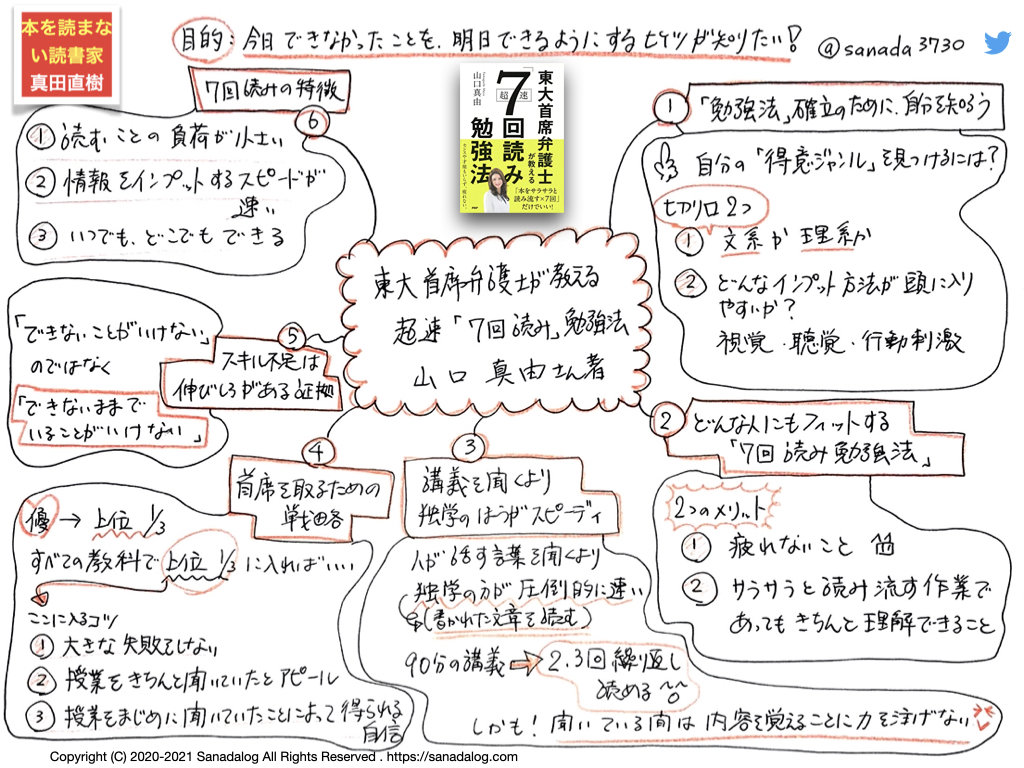 本を読まな
い読書家
真田直樹
目的：今日できなかったことを、明日できるようにするヒケツが知りたい！
@sanada3730
東大首席弁護士
が教える
超速
「7回読み」
勉強法
山口真由
「本をサラサラと
読み流す×7回」
だけでいい！
PHP
東大首席弁護士が教える
超速「7回読み」勉強法
山口 真由さん著
①「勉強法」確立のために、自分を知ろう
自分の「得意ジャンル」を見つけるには？
切り口2つ
① 文系か 理系か
② どんなインプット方法が頭に入り
やすいか？
視覚・聴覚・行動刺激
② どんな人にもフィットする
「7回読み勉強法」
2つのメリット
① 疲れないこと
② サラサラと読み流す作業で
あってもきちんと理解できること
③
講義を聞くより
独学のほうがスピーディ
人が話す言葉を聞くより
独学の方が圧倒的に速い
(書かれた文章を読む)
90分の講義→2.3回繰り返し
読める
しかも！聞いている間は内容を覚えることに力を注げない
④
首席を取るための
戦略
優→上位1/3
すべての教科で上位1/3に入ればいい
ここに入るコツ
① 大きな失敗をしない
② 授業をきちんと聞いていたとアピール
③ 授業をまじめに聞いていたことによって得られる
自信
⑤
スキル不足は
伸びしろがある証拠
「できないことがいけない」
のではなく
「できないままで
いることがいけない」
7回読みの特徴
⑥
① 読むことの負荷が小さい
② 情報をインプットするスピードが
速い
③ いつでも、どこでもできる
Copyright (C) 2020-2021 Sanadalog All Rights Reserved . https://sanadalog.com